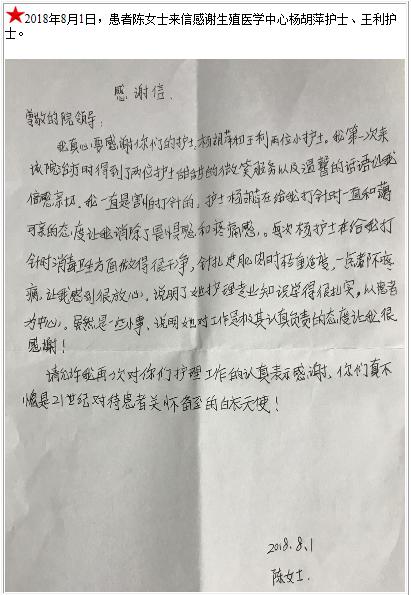 ★2018年8月1日，患者陈女士来信感谢生殖医学中心杨胡萍护士、王利护
士。
感谢信.
尊敬的院领导:
我真心要感谢你们的护士,杨胡萍和王利两位小护士。我第一次来
该院治疗时得到了两位护士甜甜的微笑服务以及温馨的话语让我
倍感亲切、我一直是害怕打针的，护士杨胡萍在给我打针时一直和蔼
可亲的态度让我消除了畏惧感和疼痛感。每次杨护士在给我打
针时消毒卫生方面做得很干净，针扎进肌肉时轻重适度，一点都不疼
痛，让我感到很放心，说明了她护理专业知识学得很扎实，以患者
为中心。虽然是一些小事、说明她对工作是极其认真负责的态度让我很
感谢!
请允许我再一次对你们护理工作的认真表示感谢，你们真不
愧是21世纪对待患者关怀备至的白衣天使!
2018.8.1
陈女士.